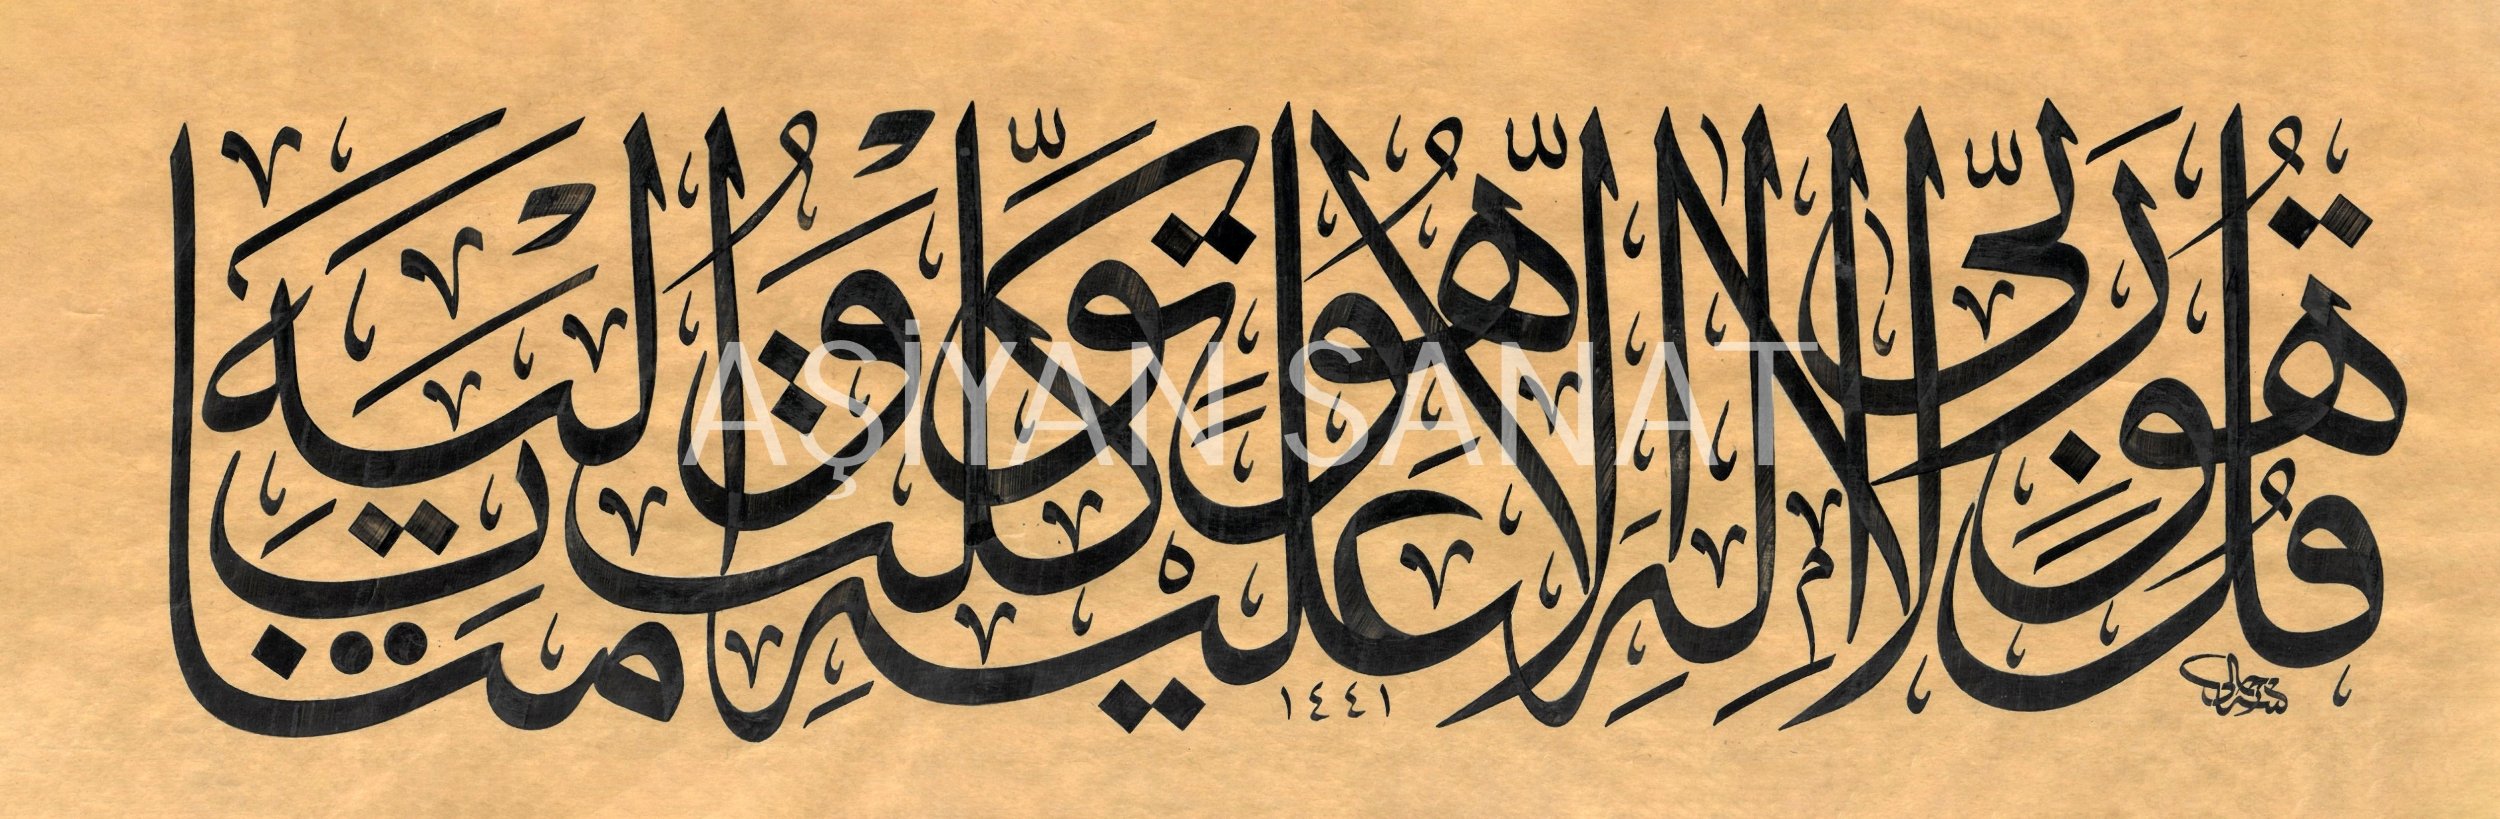 قُلْ هُوَ رَبِّي لَا إِلَٰهَ إِلَّا هُوَ عَلَيْهِ تَوَكَّلْتُ وَإِلَيْهِ مَتَابِ
١٤٤١
AŞİYAN SANAT